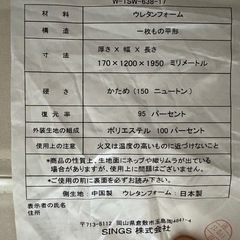 W-TSW-638-17
材料 ウレタンフォーム
構造 一枚もの平形
寸法 厚さ × 幅 × 長さ
170×1200×1950 ミリメートル
硬さ かため（150 ニュートン）
復元率 95 パーセント
外装生地の組成 ポリエステル 100 パーセント
使用上の注意 火又は温度の高いものに近づけないこと。
*商品の性質上、生地面にネップや絞りムラが出ている
場合がありますが、使用上に問題はありません。
*ご使用の前に裏面を必ずお読み下さい。
側生地：中国製 ウレタンフォーム：日本製
表示者の氏名
住所
〒713-8112 岡山県倉敷市玉島
SINGS 株式会社